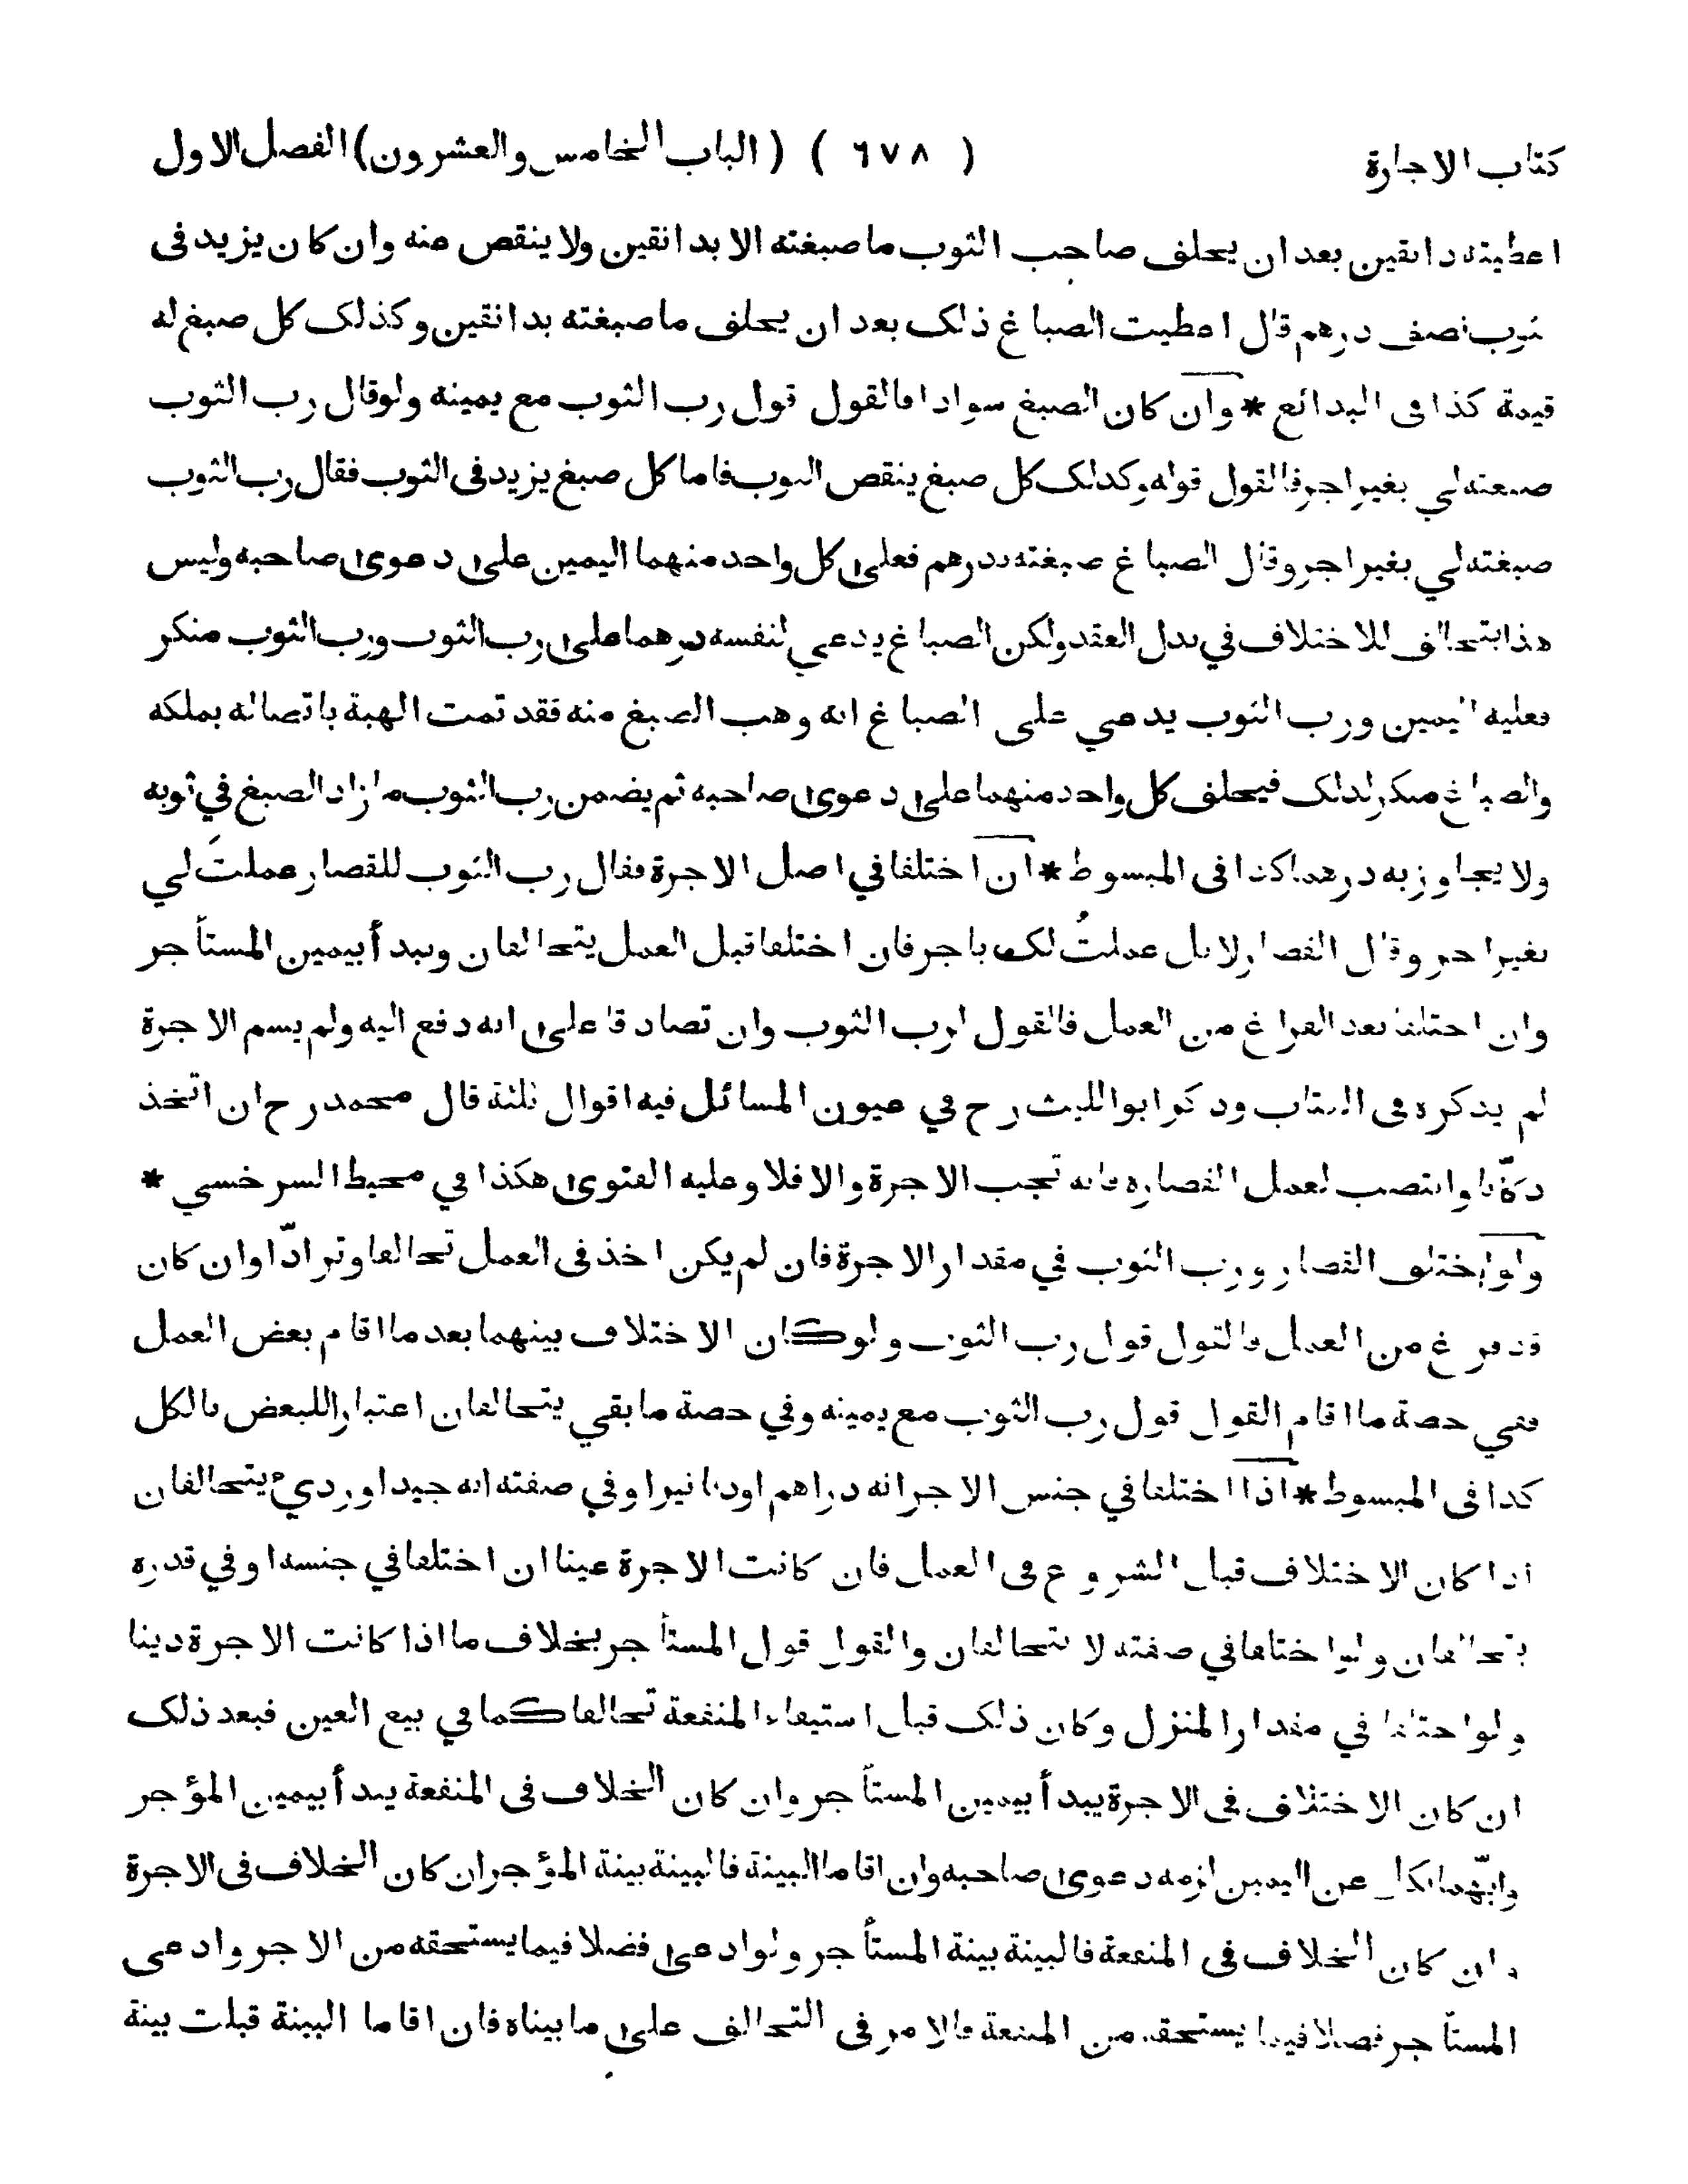 كتاب الاجارة ( ٦٧٨ ) ( الباب الخامس والعشرون) الفصل الاول
اعطيته دانقين بعد ان يحلف صاحب الثوب ما صبغته الا بدانقين ولا ينقص منه وان كان يزيد فى
ثوب نصف درهم قال اعطيت الصباغ ذلك بعد ان يحلف ما صبغته بدانقين وكذلك كل صبغ له
قيمة كذا فى البدائع * وان كان الصبغ سوادا فالقول قول رب الثوب مع يمينه ولو قال رب الثوب
صبغته لي بغير اجر فالقول قوله وكذلك كل صبغ ينقص الثوب فاما كل صبغ يزيد فى الثوب فقال رب الثوب
صبغته لي بغير اجر وقال الصباغ صبغته بدرهم فعلى كل واحد منهما اليمين على دعوى صاحبه وليس
هذا بتحالف للاختلاف في بدل العقد ولكن الصباغ يدعي لنفسه درهما على رب الثوب ورب الثوب منكر
فعليه اليمين ورب الثوب يدعي على الصباغ انه وهب الصبغ منه فقد تمت الهبة باتصاله بملكه
والصباغ منكر لذلك فيحلف كل واحد منهما على دعوى صاحبه ثم يضمن رب الثوب ما زاد الصبغ في ثوبه
ولا يجاوز به درهما كذا فى المبسوط * ان اختلفا في اصل الاجرة فقال رب الثوب للقصار عملتَ لي
بغير اجر وقال القصار لا بل عملتُ لك باجر فان اختلفا قبل العمل يتحالفان ويبدأ بيمين المستأجر
وان اختلفا بعد الفراغ من العمل فالقول لرب الثوب وان تصادقا على انه دفع اليه ولم يسم الاجرة
لم يذكره فى الكتاب وذكر ابو الليث رح في عيون المسائل فيه اقوال ثلثة قال محمد رح ان اتخذ
دكّانا وانتصب لعمل القصارة فانه تجب الاجرة والا فلا وعليه الفتوى هكذا في محيط السرخسي *
ولو اختلف القصار ورب الثوب في مقدار الاجرة فان لم يكن اخذ فى العمل تحالفا وترادّا وان كان
قد فرغ من العمل فالقول قول رب الثوب ولو كان الاختلاف بينهما بعد ما اقام بعض العمل
ففي حصة ما اقام القول قول رب الثوب مع يمينه وفي حصة ما بقي يتحالفان اعتبارا للبعض بالكل
كذا فى المبسوط * اذا اختلفا في جنس الاجر انه دراهم او دنانير او في صفته انه جيد او رديء يتحالفان
اذا كان الاختلاف قبل الشروع فى العمل فان كانت الاجرة عينا ان اختلفا في جنسه او في قدره
يتحالفان ولو اختلفا في صفته لا يتحالفان والقول قول المستأجر بخلاف ما اذا كانت الاجرة دينا
ولو اختلفا في مقدار المنزل وكان ذلك قبل استيفاء المنفعة تحالفا كما في بيع العين فبعد ذلك
ان كان الاختلاف فى الاجرة يبدأ بيمين المستأجر وان كان الخلاف فى المنفعة يبدأ بيمين المؤجر
وايّهما نكل عن اليمين لزمه دعوى صاحبه وان اقاما البينة فالبينة بينة المؤجر ان كان الخلاف فى الاجرة
وان كان الخلاف فى المنفعة فالبينة بينة المستأجر ولو ادعى فضلا فيما يستحقه من الاجر وادعى
المستأجر فضلا فيما يستحقه من المنفعة فالامر فى التحالف على ما بيناه فان اقاما البينة قبلت بينة